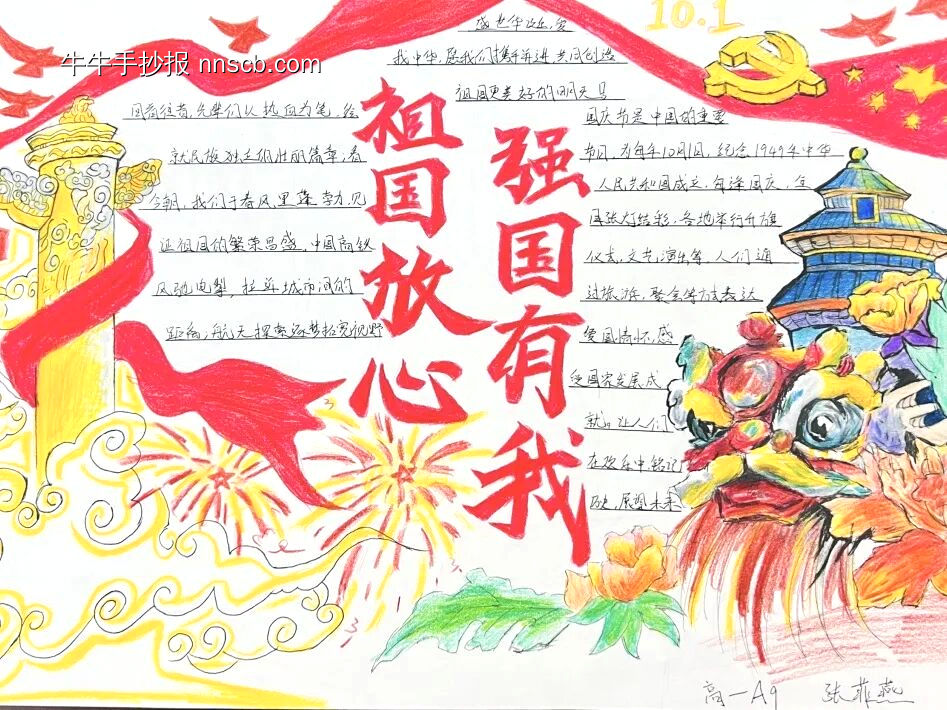 牛牛手抄报 nnscb.com
10.1
盛世华诞,爱
我中华,愿我们携手并进 共同创造
祖国更美好的明天！
祖国放心
强国有我
回首往昔,先辈们以热血为笔,绘
就民族独立的壮丽篇章;看
今朝,我们于春风里蓬勃,见
证祖国的繁荣昌盛,中国高铁
风驰电掣,拉近城市间的
距离;航天探索逐梦拓宽视野
国庆节是中国的重要
节日,为每年10月1日,纪念1949年中华
人民共和国成立,每逢国庆,全
国张灯结彩,各地举行升旗
仪式,文艺演出等,人们通
过旅游,聚会等方式表达
爱国情怀,感
受国家发展成
就。让人们
在欢乐中铭记
历史,展望未来
高一A9 张菲燕